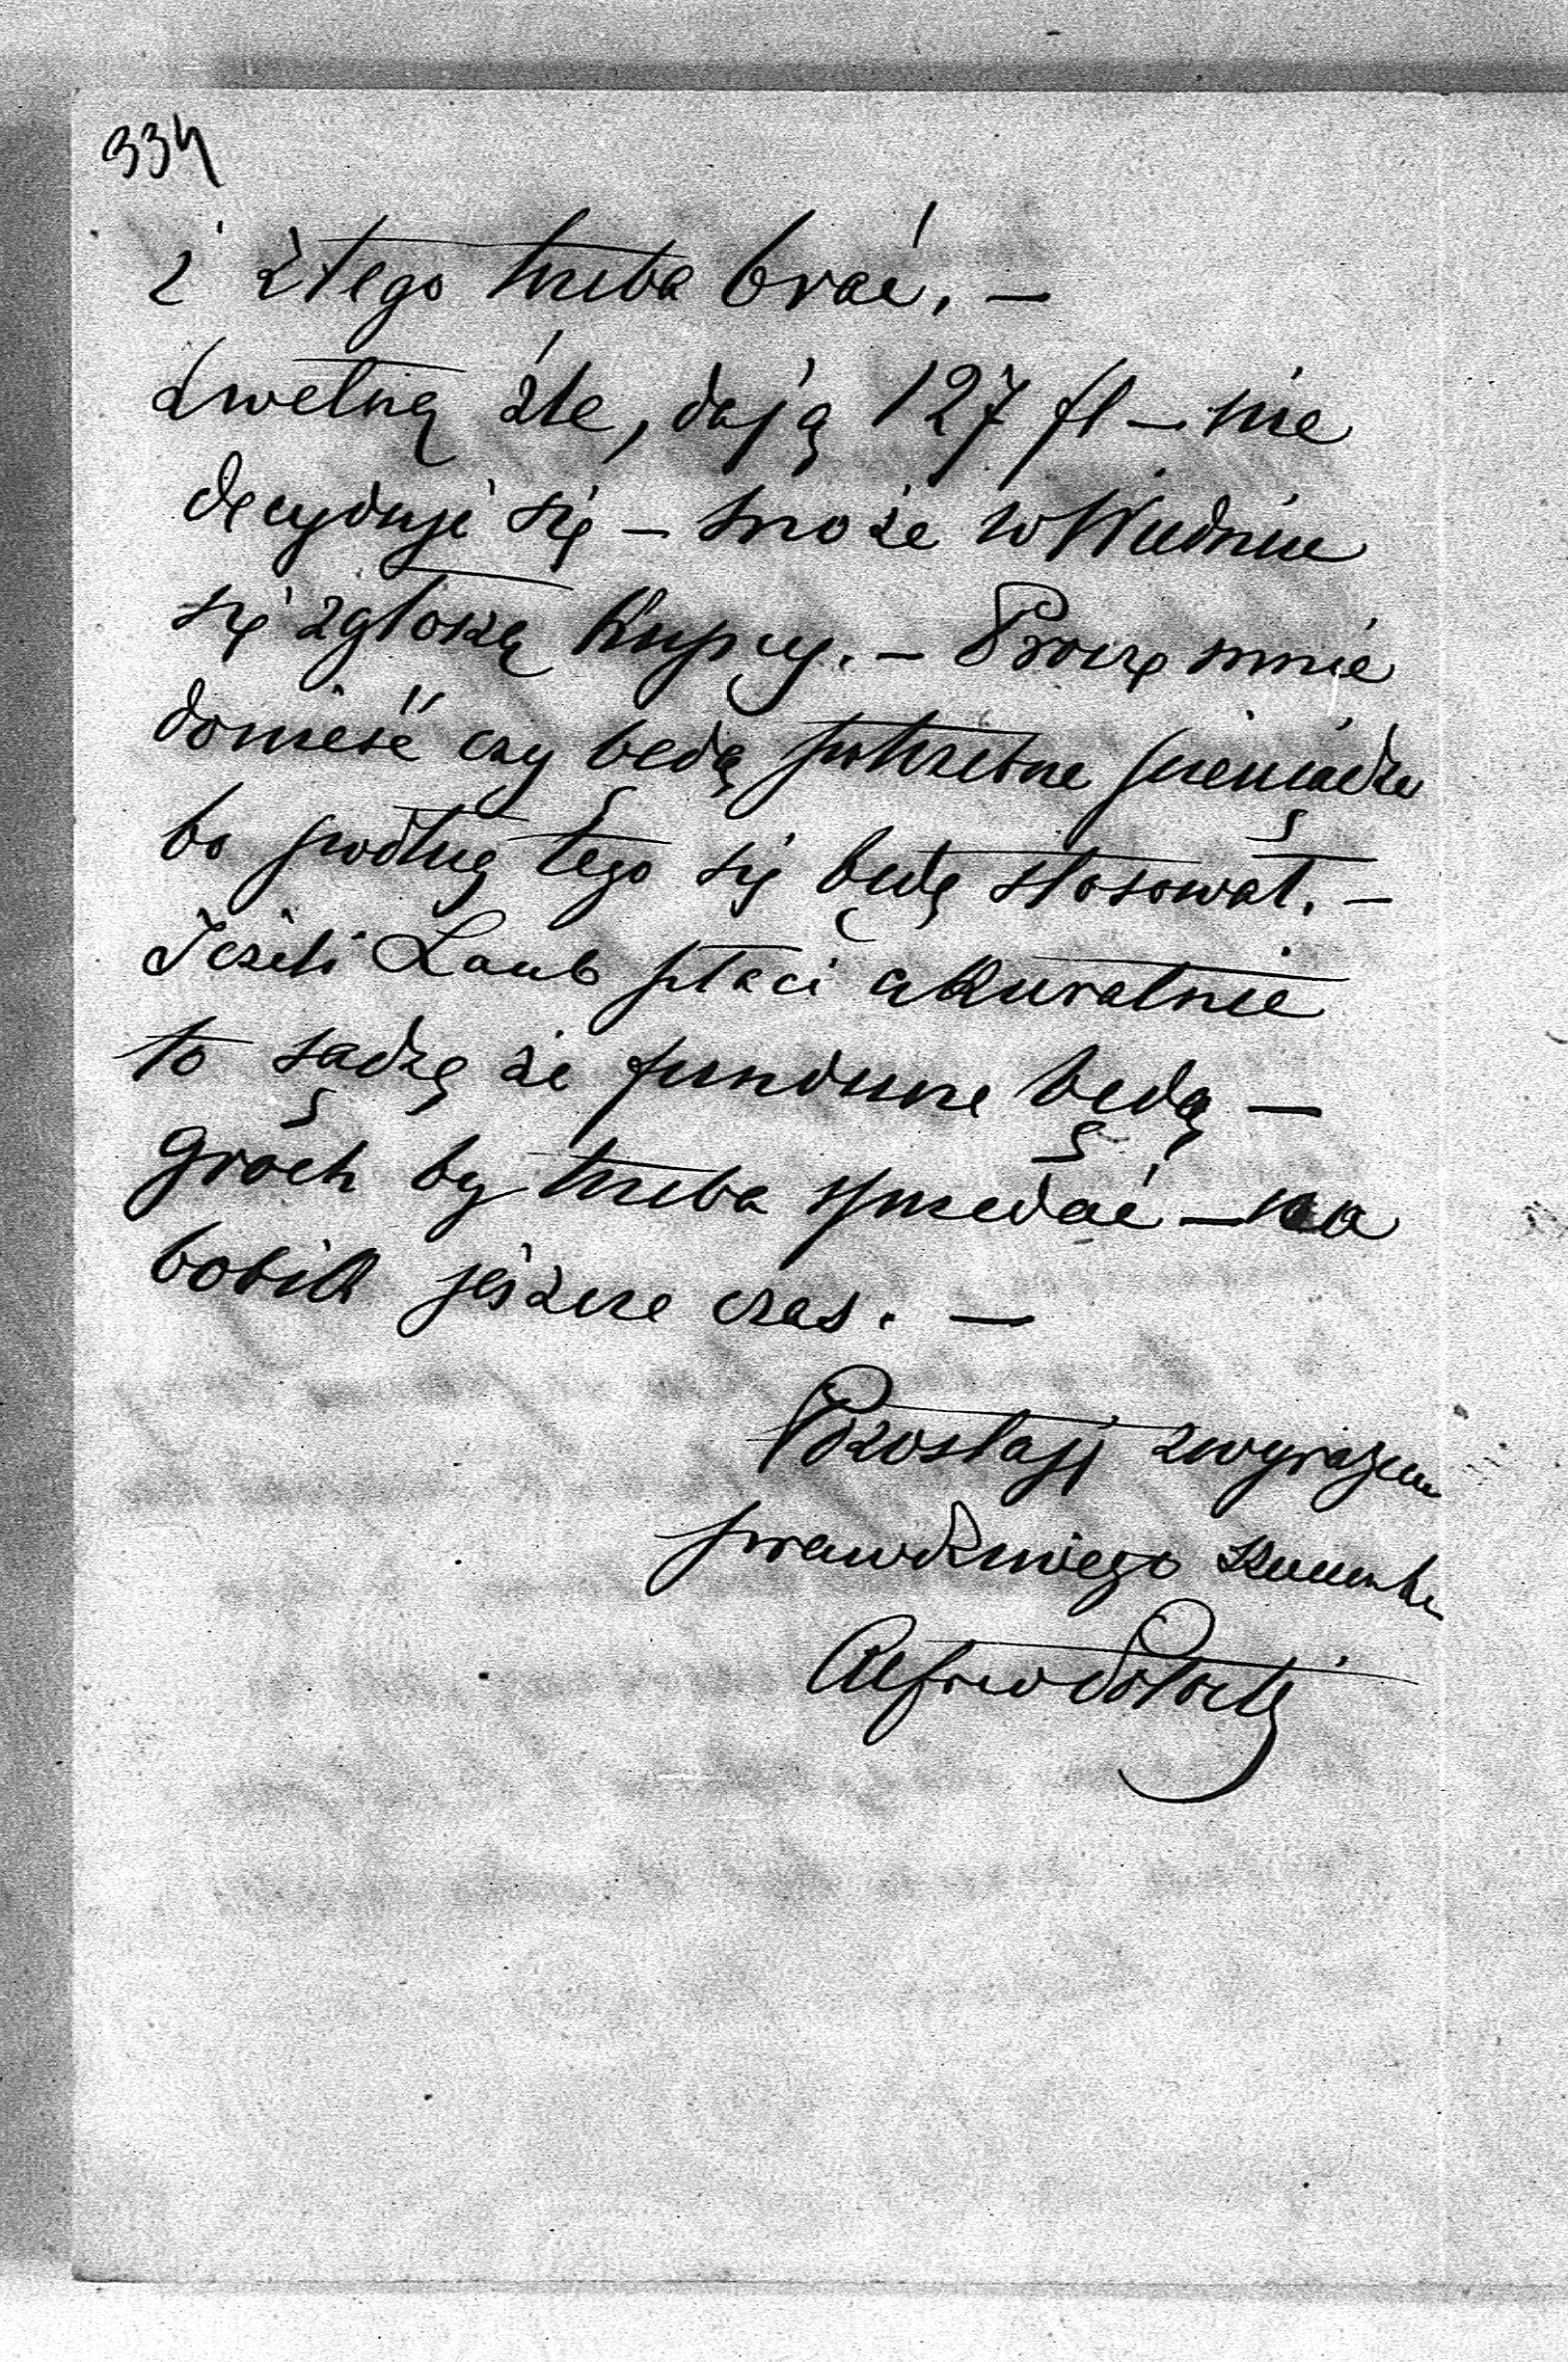 334
i z tego trzeba brać. —
z wełną źle, dają 127 fl — nie
decyduję się — może w Wiedniu
się zgłoszą kupcy. — Proszę mnie
donieść czy będą potrzebne pieniądze
bo podług tego się będę stosował. —
Jeżeli Laub płaci akuratnie
to sądzę że fundusze będą —
groch by trzeba sprzedać — na
bobik jeszcze czas. —
Pozostaję z wyrazem
prawdziwego szacunku
Alfred Potocki